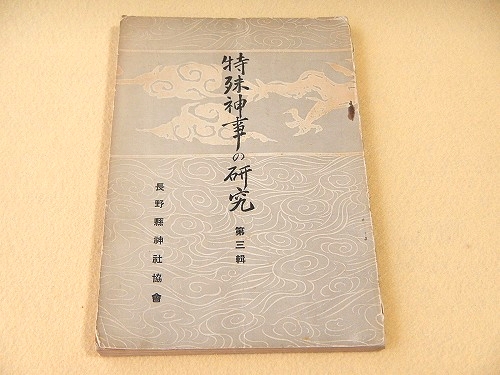 特殊神事の研究
第三輯
長野縣神社協會